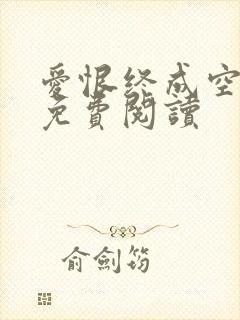 愛恨終成空
免費閱讀
俞劍筠